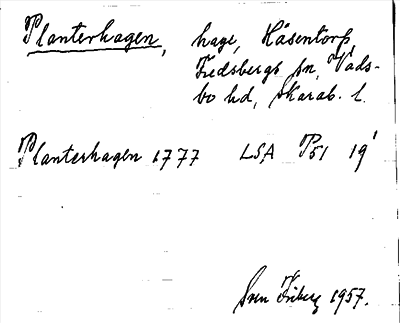 Planterhagen, hage, Håsentorp,
Fredsbergs sn, Vads-
bo hd, Skarab. l.
Planterhagen 1777 LSA P51 19¹
Sven Friberg 1957.